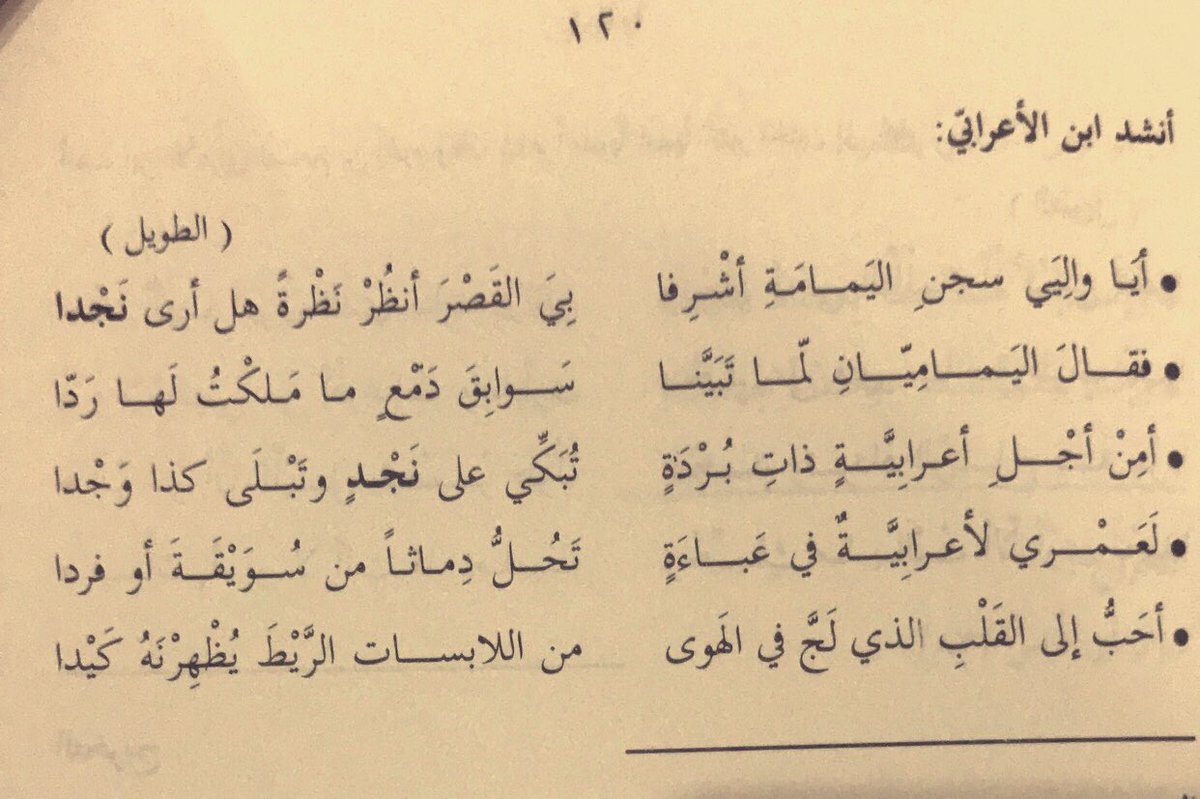 ١٢٠
أنشد ابن الأعرابيّ:
( الطويل )
• أيَا والِيَي سجنِ اليَمامَةِ أشْرِفا بِيَ القَصْرَ أنظُرْ نَظْرةً هل أرى نَجْدا
• فقالَ اليَمامِيّانِ لّما تَبَيَّنا سَوابِقَ دَمْعٍ ما مَلكْتُ لَها رَدّا
• أمِنْ أجْلِ أعرابِيَّةٍ ذاتِ بُرْدَةٍ تُبَكِّي على نَجْدٍ وتَبْلَى كذا وَجْدا
• لَعَمْري لأعرابِيَّةٌ في عَباءَةٍ تَحُلُّ دِماثاً من سُوَيْقَةَ أو فردا
• أحَبُّ إلى القَلْبِ الذي لَجَّ في الَهوى من اللابسات الرَّيْطَ يُظْهِرْنَهُ كَيْدا